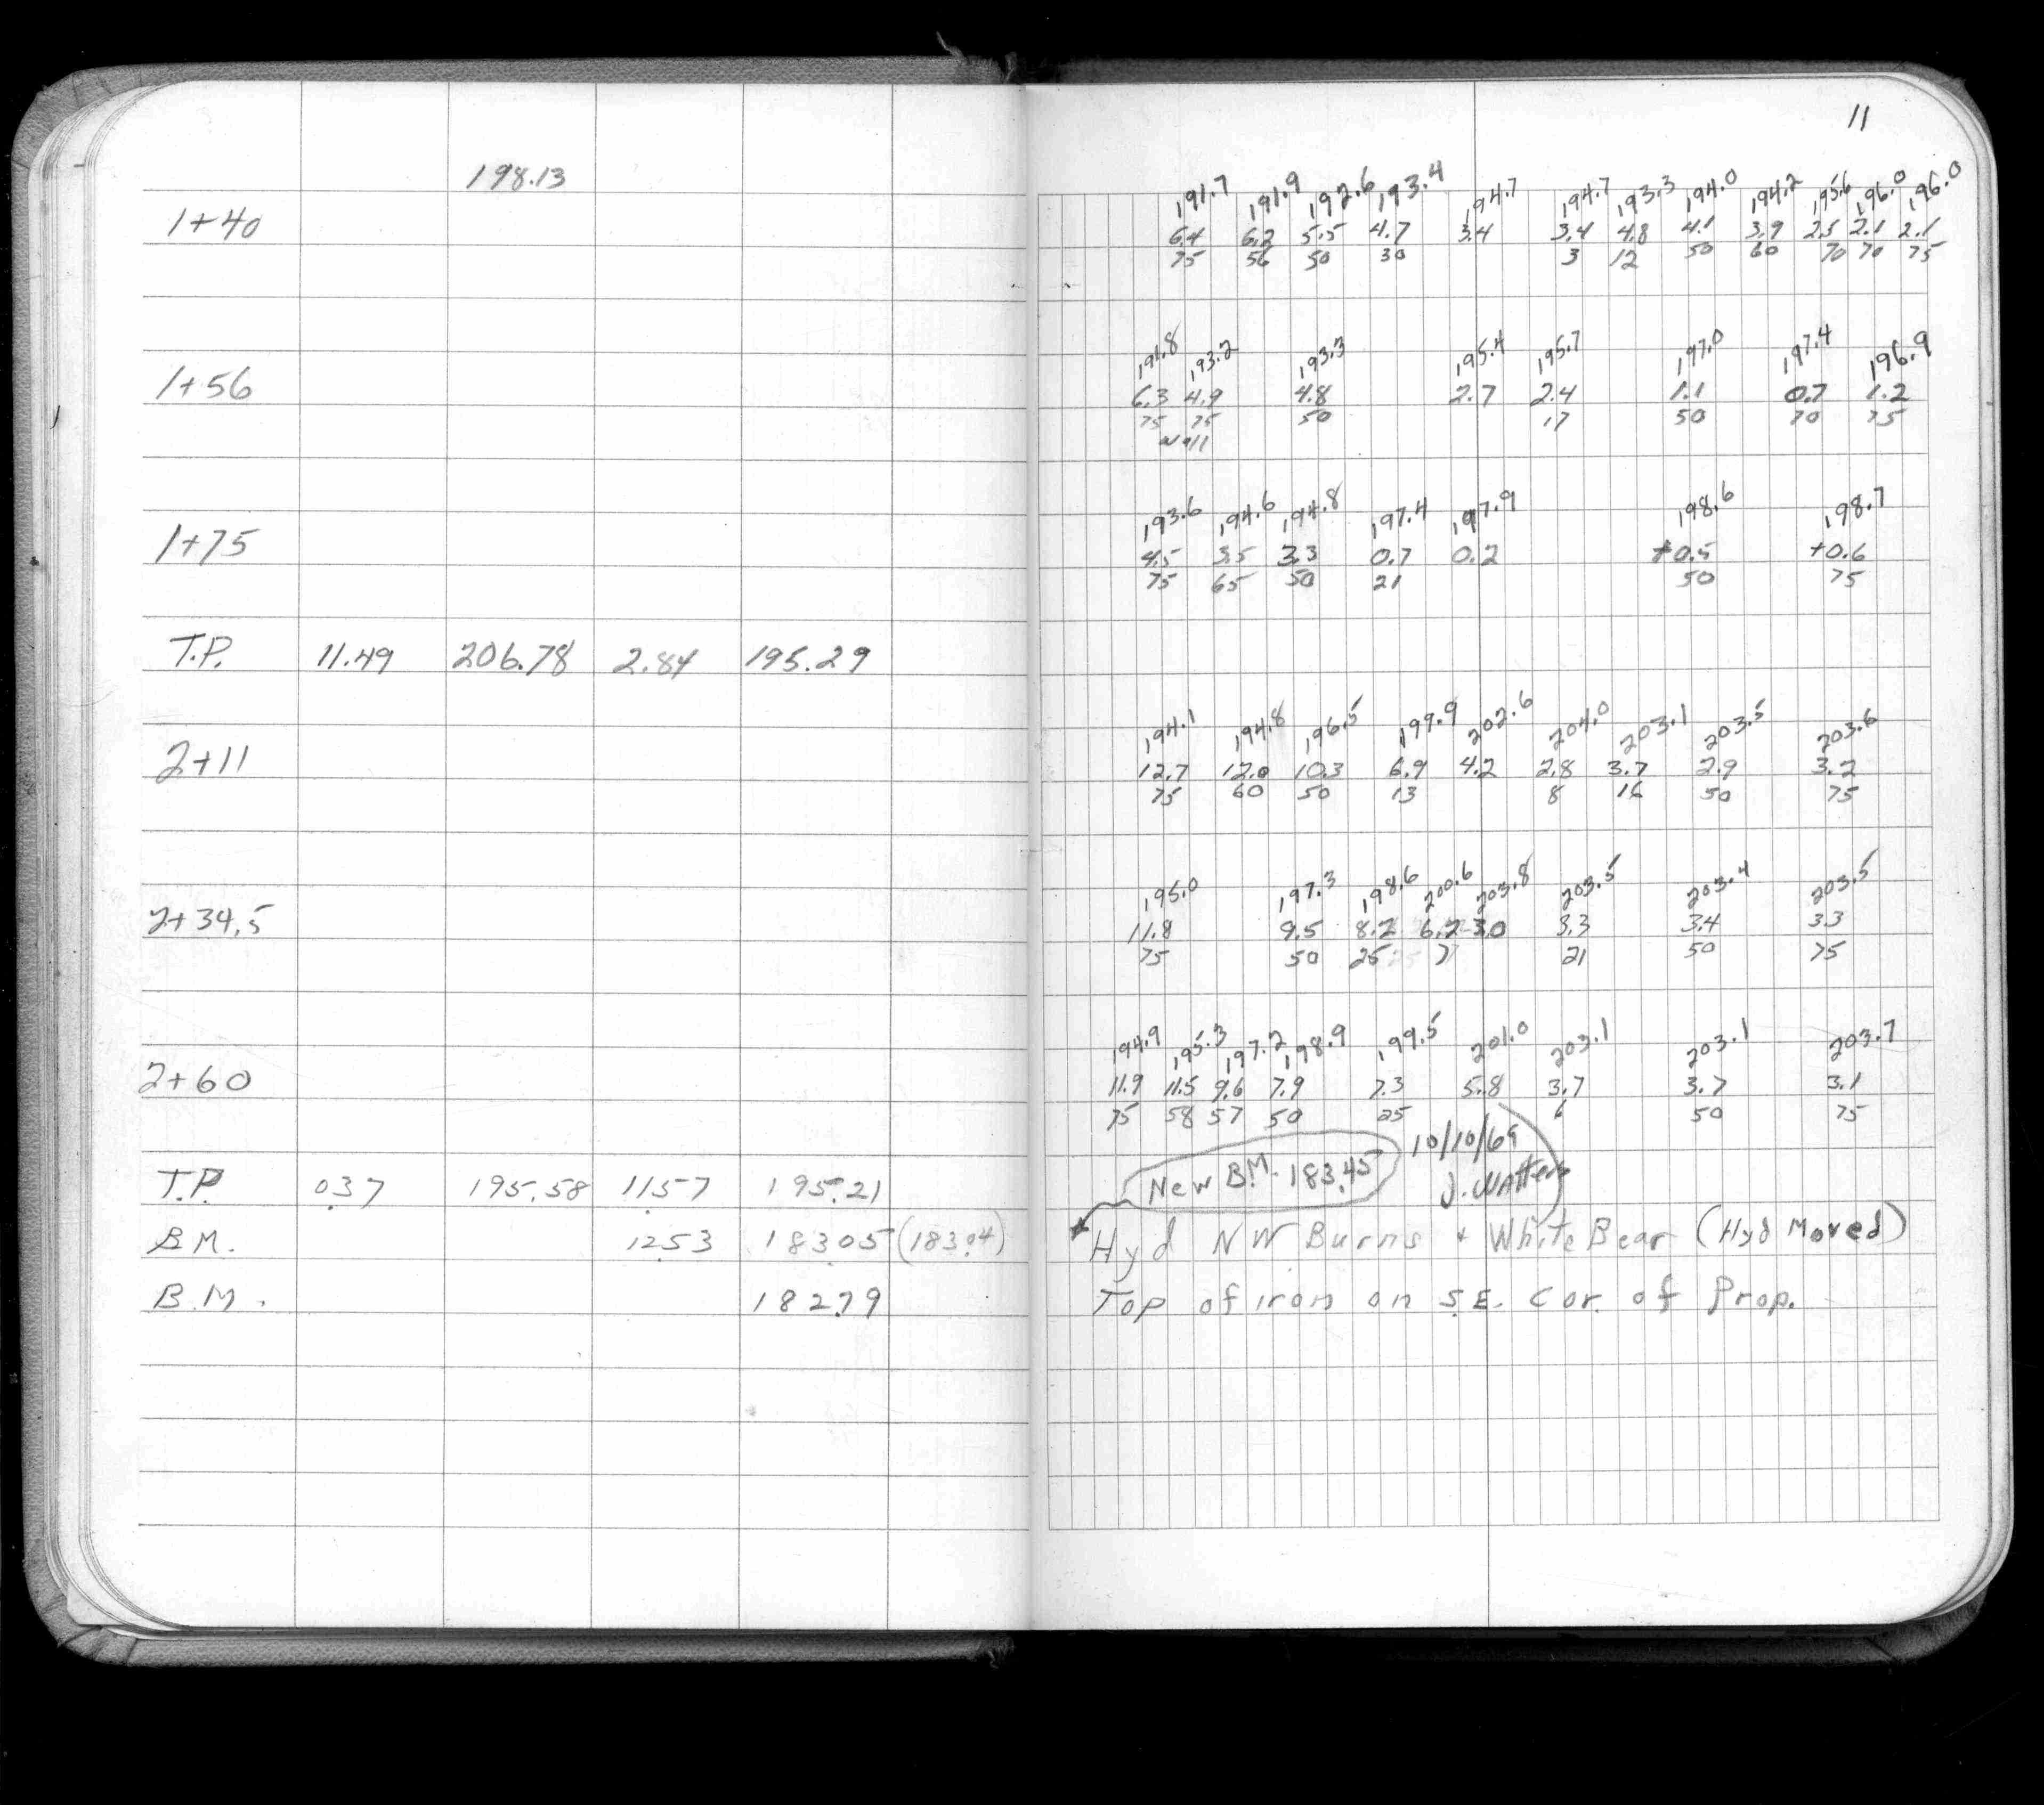 11
198.13
191.7 191.9 192.6 193.4 194.7 194.7 193.3 194.0 194.2 195.6 196.0 196.0
1+40 6.4 6.2 5.5 4.7 3.4 3.4 4.8 4.1 3.9 2.5 2.1 2.1
75 56 50 30 3 12 50 60 70 70 75
191.8 193.2 193.3 195.4 195.7 197.0 197.4 196.9
1+56 6.3 4.9 4.8 2.7 2.4 1.1 0.7 1.2
75 75 50 17 50 70 75
wall
193.6 194.6 194.8 197.4 197.9 198.6 198.7
1+75 4.5 3.5 3.3 0.7 0.2 +0.5 +0.6
75 65 50 21 50 75
T.P. 11.49 206.78 2.84 195.29
194.1 194.8 196.5 199.9 202.6 204.0 203.1 203.5 203.6
2+11 12.7 12.0 10.3 6.9 4.2 2.8 3.7 2.9 3.2
75 60 50 13 8 16 50 75
195.0 197.3 198.6 200.6 203.8 203.5 203.4 203.5
2+34.5 11.8 9.5 8.2 6.2 3.0 3.3 3.4 3.3
75 50 25 7 21 50 75
194.9 195.3 197.2 198.9 199.5 201.0 203.1 203.1 203.7
2+60 11.9 11.5 9.6 7.9 7.3 5.8 3.7 3.7 3.1
75 58 57 50 25 6 50 75
10/10/69
T.P. 0.37 195.58 11.57 195.21 New B.M. 183.45 J. Watters
B.M. 12.53 183.05 (183.04) Hyd NW Burns + White Bear (Hyd Moved)
B.M. 182.79 Top of iron on S.E. Cor. of Prop.